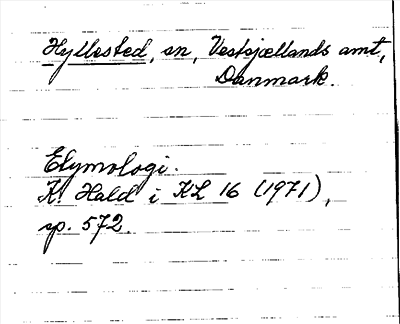 Hyllested, sn, Vestsjællands amt,
Danmark.
Etymologi.
K. Hald i KL 16 (1971),
sp. 572.